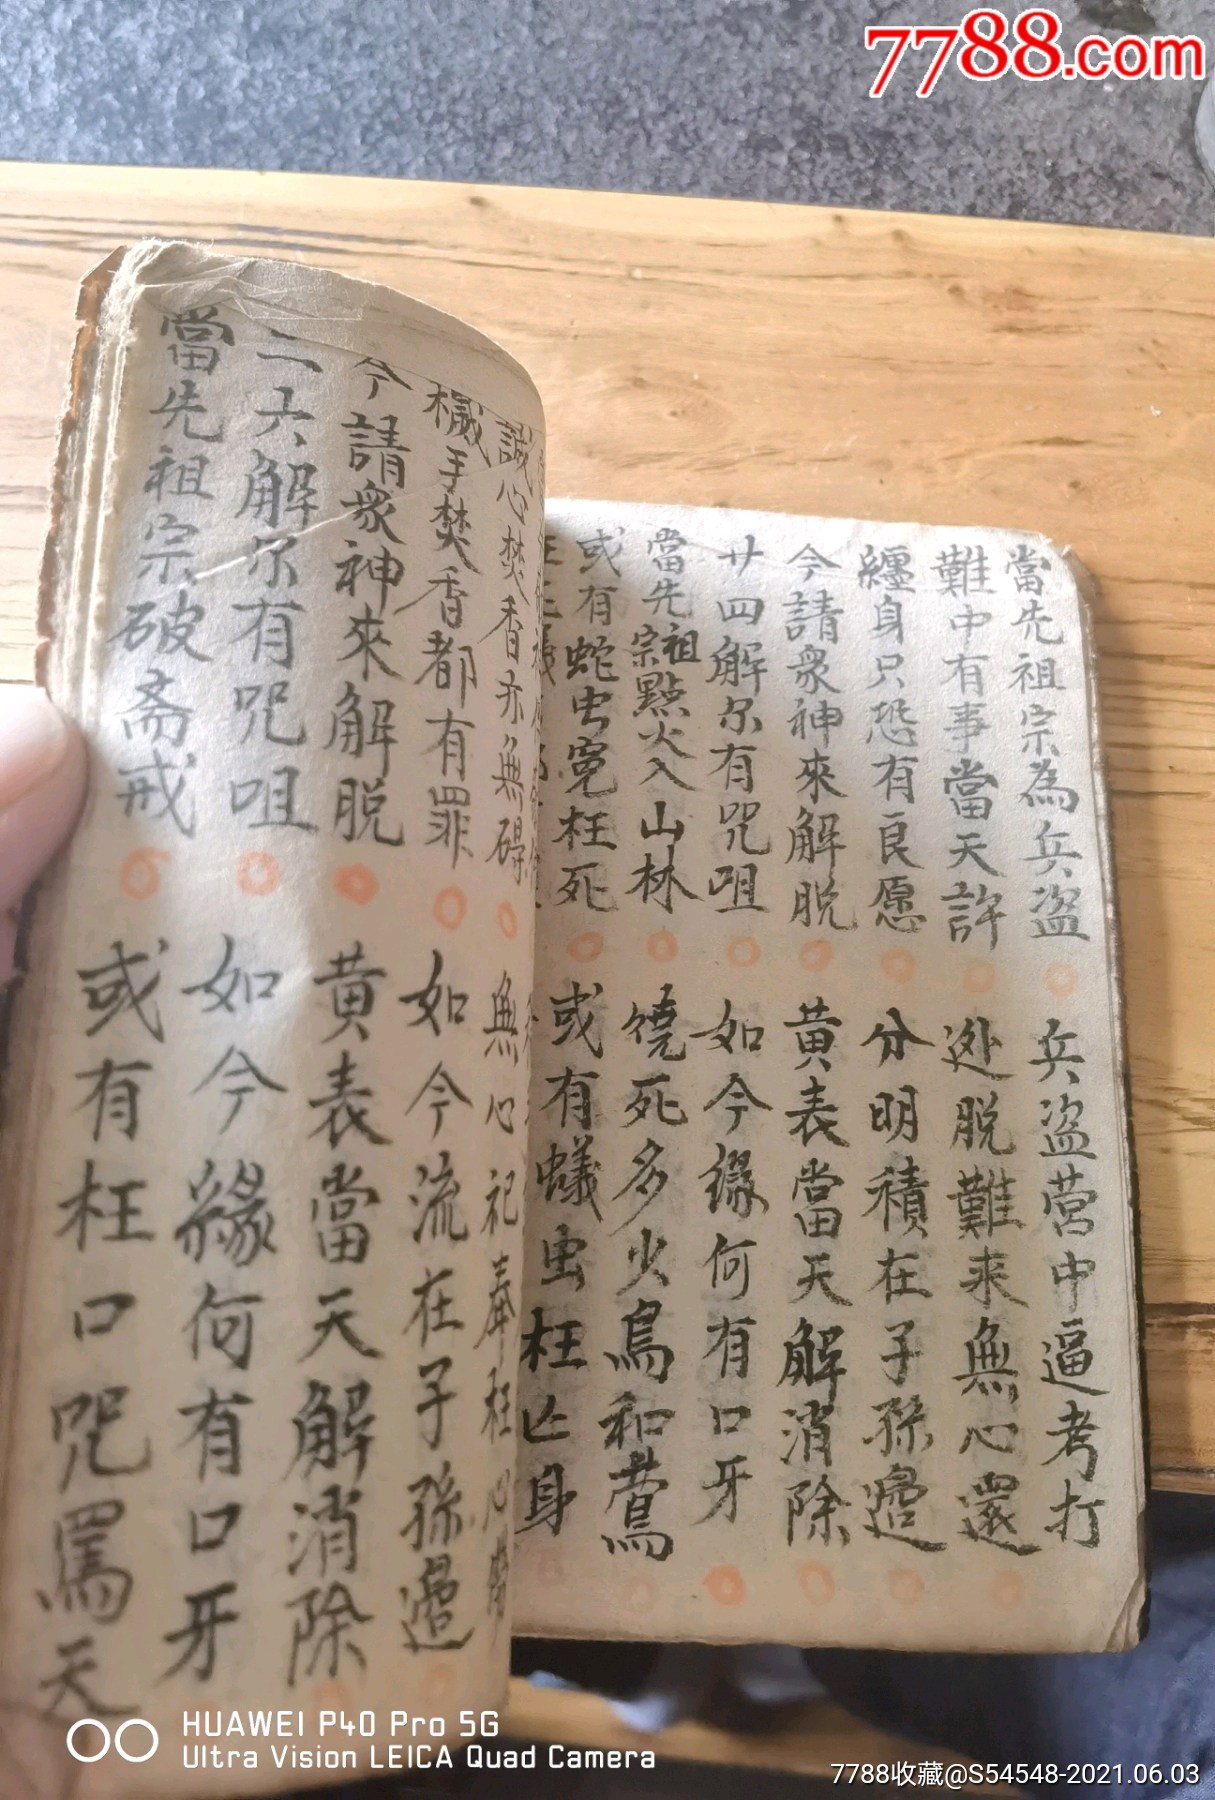 7788.com
當先祖宗為兵盜 兵盜营中逼考打
難中有事當天許 迯脱難来無心還
纏身只恐有良愿 分明積在子孫邉
今請衆神來解脱 黄表當天解消除
廿四解尔有咒咀 如今缘何有口牙
當先祖宗點火入山林 燒死多少鳥和鶯
或有蛇虫寃枉死 或有蟻虫枉亡身
誠心焚香亦無碍 無心祀奉枉心
手焚香都有罪 如今流在子孫邉
今請衆神來解脱 黄表當天解消除
二六解尔有咒咀 如今緣何有口牙
當先祖宗破斋戒 或有枉口咒罵天
HUAWEI P40 Pro 5G
Ultra Vision LEICA Quad Camera
7788收藏@S54548-2021.06.03